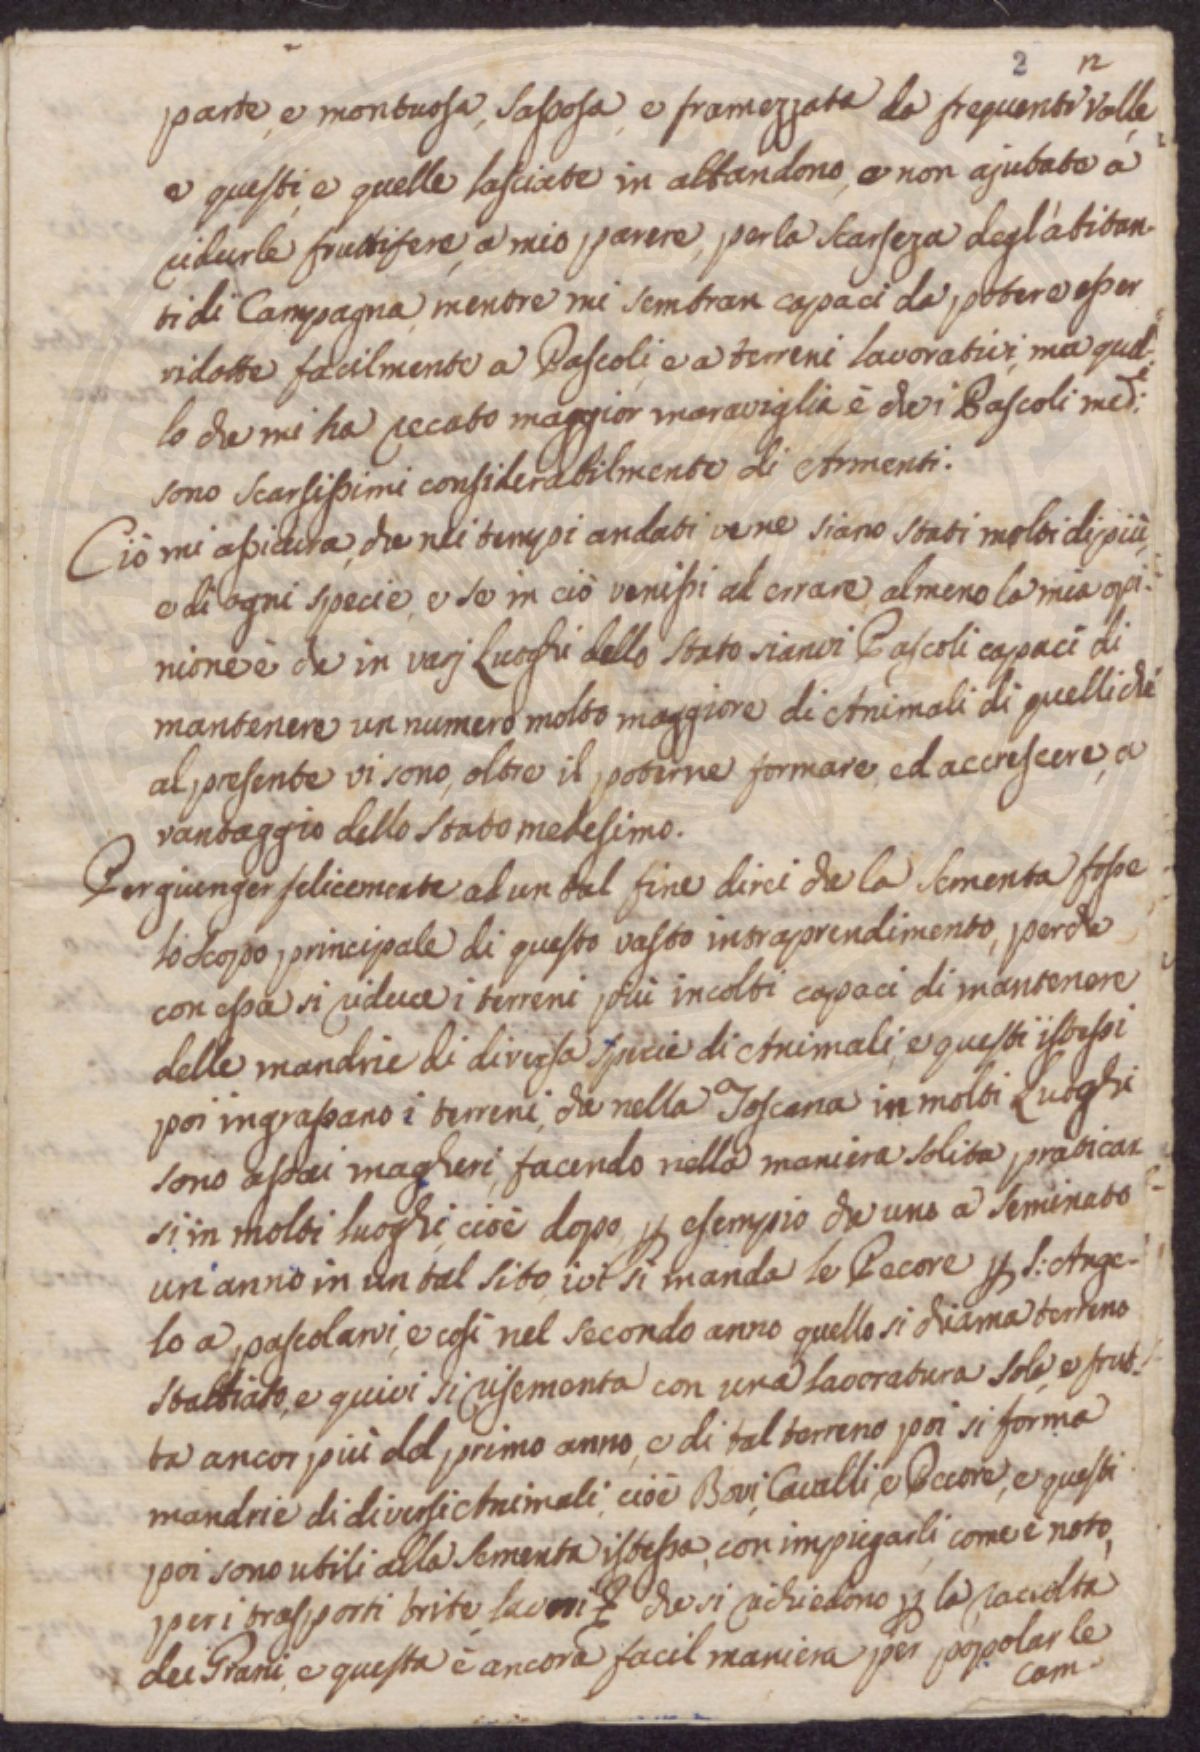 2 n
parte, e montuosa, Sassosa, e framezzata da frequenti Valle,
e questi, e quelle lasciate in abbandono, e non ajutate a
ridurle fruttifere, a mio parere, per la scarseza degl'abitan-
ti di Campagna, mentre mi sembran capaci da potere esser
ridotte facilmente a Pascoli, e a terreni lavorativi, ma quel-
lo che mi ha recato maggior maraviglia è che i Pascoli med.i
sono scarsissimi considerabilmente di Armenti.
Ciò mi assicura, che nei tempi andati ve ne siano stati molti di più,
e di ogni specie, e se in ciò venissi ad errare, almeno la mia opi-
nione è che in varj Luoghi dello Stato sianvi Pascoli capaci di
mantenere un numero molto maggiore di Animali di quelli che
al presente vi sono, oltre il poterne formare, ed accrescere, a
vantaggio dello Stato medesimo.
Per giunger felicemente ad un tal fine direi che la Sementa fosse
lo Scopo principale di questo vasto intraprendimento, perche
con essa si riduce i terreni più incolti capaci di mantenere
delle mandrie di diversa specie di Animali, e questi istessi
poi ingrassano i terreni, che nella Toscana in molti Luoghi
sono assai magheri, facendo nella maniera solita praticar
si in molti luoghi, cioè dopo p esempio che uno a Seminato
un'anno in un tal Sito, ivi si manda le Pecore p S: Ange-
lo a pascolarvi, e così nel secondo anno quello si chiama terreno
Stabbiato, e quivi si risementa con una lavoratura sola, e frut-
ta ancor più del primo anno, e di tal terreno poi si forma
mandrie di diversi Animali, cioè Bovi, Cavalli, e Pecore, e questi
poi sono utili alla Sementa istessa, con impiegarli, come è noto,
per i trasporti trite, lavori & che si richiedono p la raccolta
dei Grani, e questa è ancora facil maniera per popolar le
Cam-